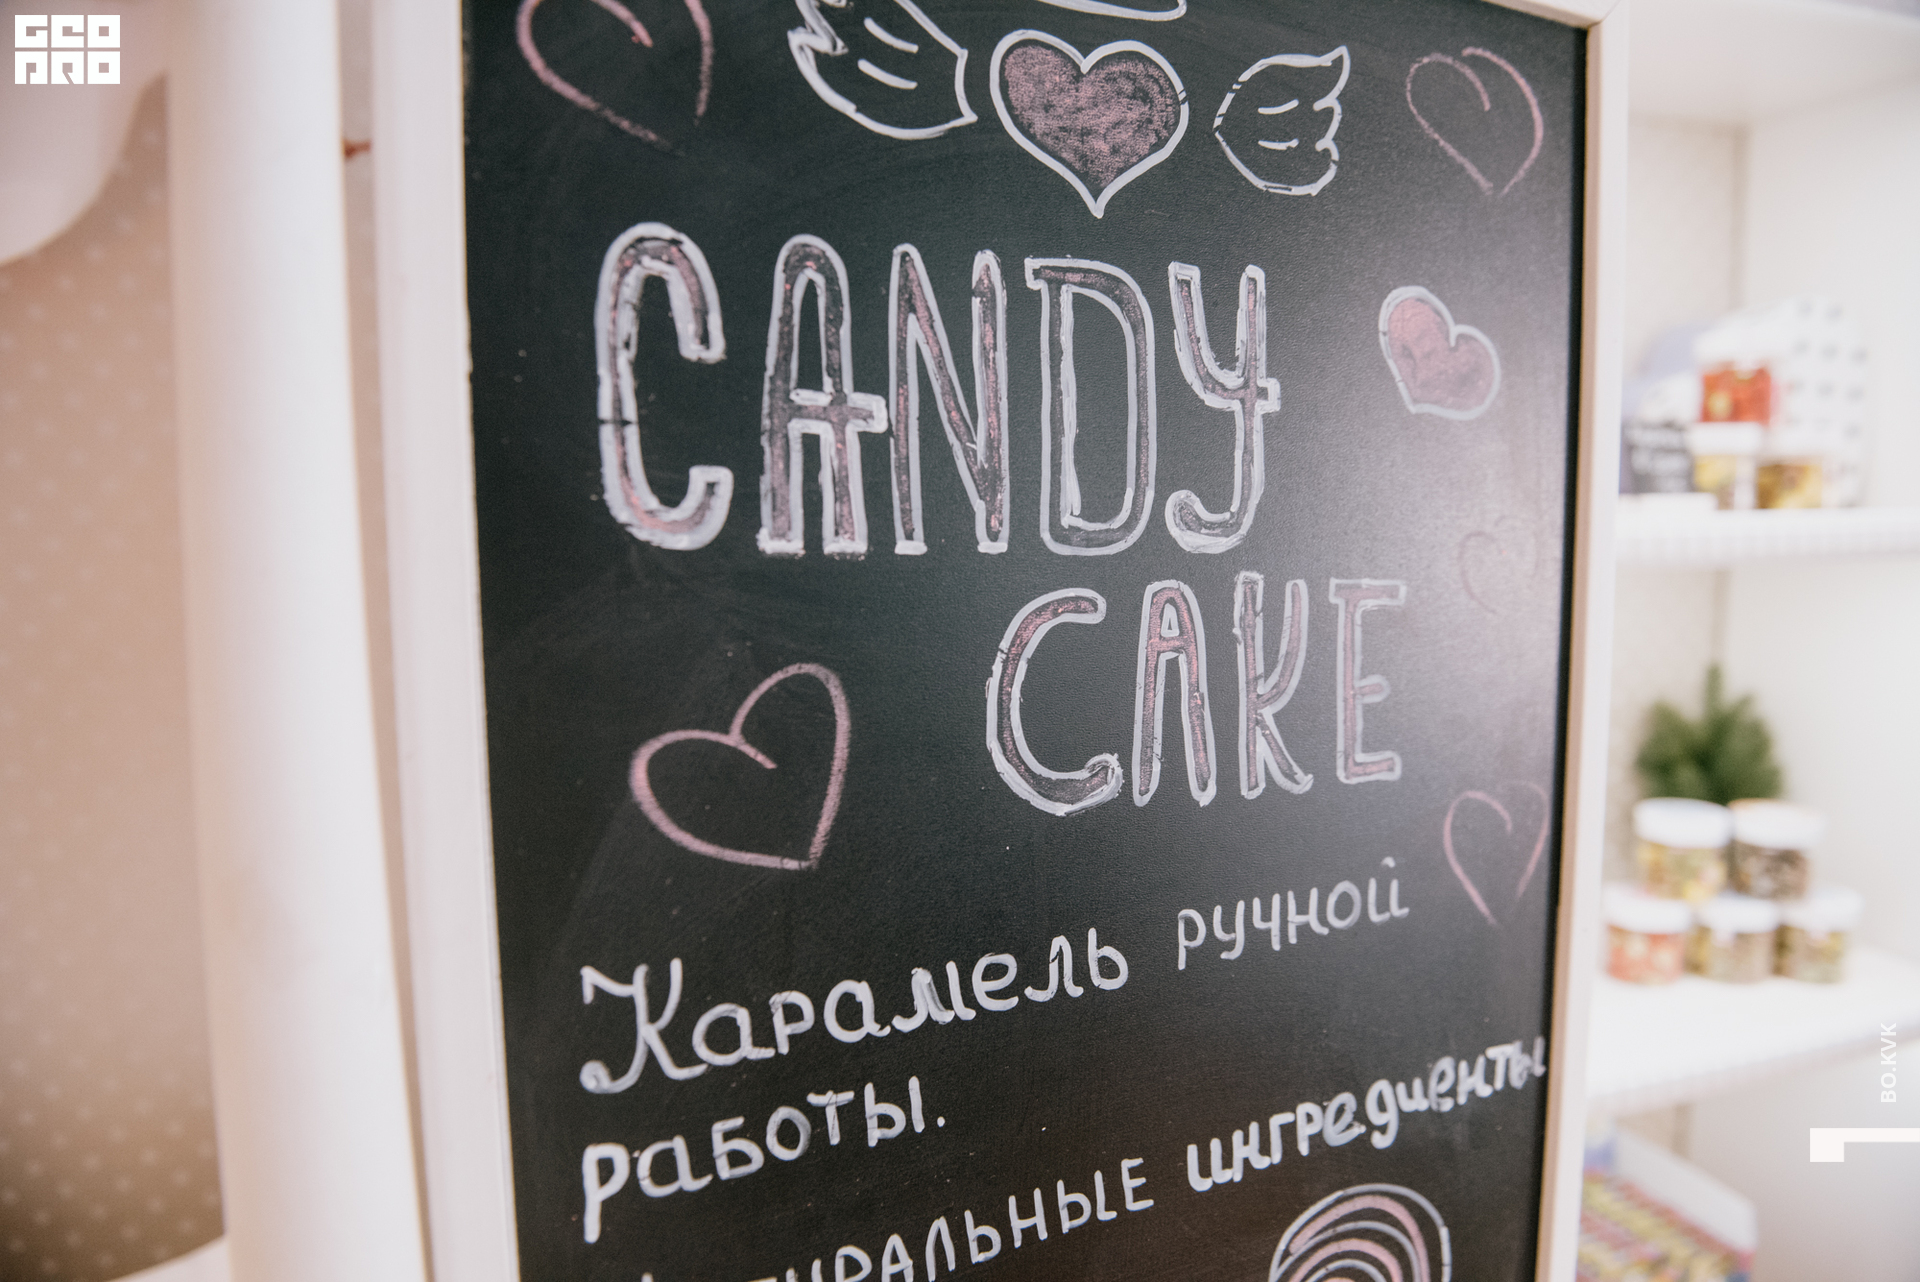 GEO
PRO
CANDY
CAKE
Карамель ручной
работы.
ингредиенты
BO.KVK